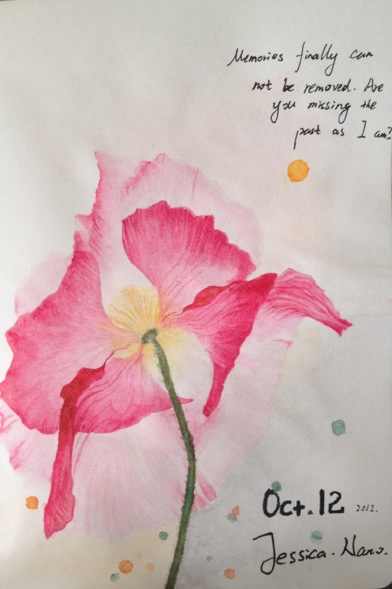 Memories finally can
not be removed. Are
you missing the
past as I am?
Oct. 12 2012.
Jessica.